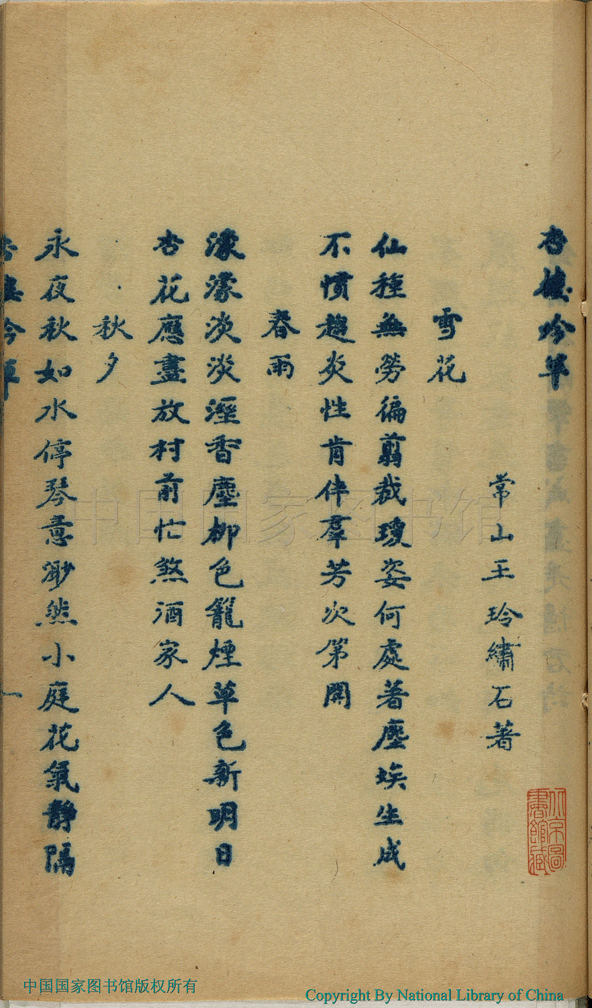 杏樓吟草
常山王玲繡石著
雪花
仙種無勞徧翦裁瓊姿何處著塵埃生成
不慣趨炎性肯伴羣芳次第開
春雨
濛濛淡淡溼香塵柳色籠煙草色新明日
杏花應盡放村前忙煞酒家人
秋夕
永夜秋如水停琴意渺然小庭花氣靜隔
杏樓吟草
一
北京圖書館藏
中国国家图书馆
中国国家图书馆版权所有
Copyright By National Library of China